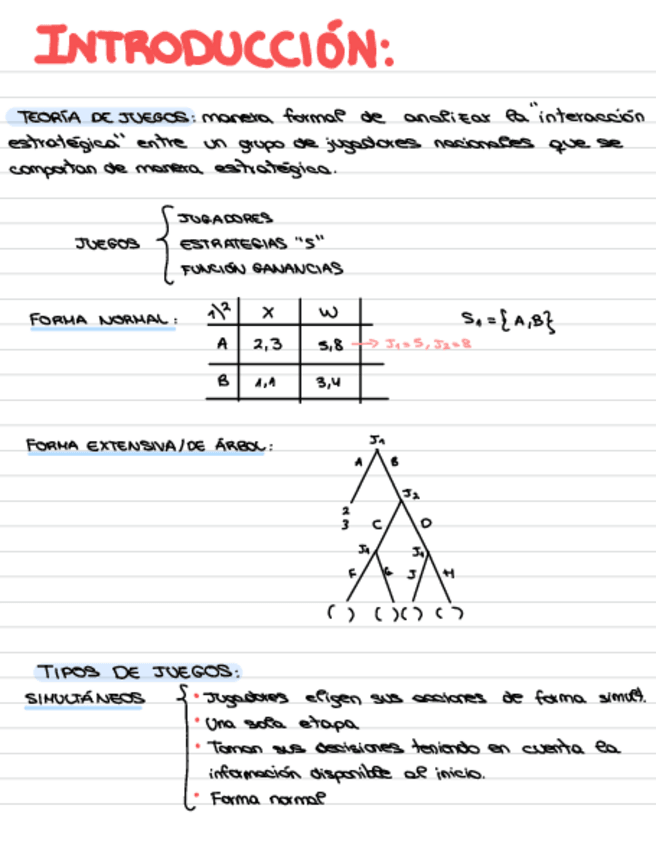 INTRODUCCIÓN:
TEORÍA DE JUEGOS: manera formal de analizar la "interacción
estratégica" entre un grupo de jugadores racionales que se
comportan de manera estratégica.
JUGADORES
JUEGOS ESTRATEGIAS "S"
FUNCIÓN GANANCIAS
FORMA NORMAL: 1\2 X W S₁ = {A,B}
A 2,3 5,8 → J₁=5, J₂=8
B 1,1 3,4
FORMA EXTENSIVA/DE ÁRBOL: J₁
A B
J₂
2
3 C D
J₁ J₁
F G J H
( ) ( ) ( ) ( )
TIPOS DE JUEGOS:
SIMULTÁNEOS • Jugadores eligen sus acciones de forma simult.
• Una sola etapa
• Toman sus decisiones teniendo en cuenta la
información disponible al inicio.
• Forma normal